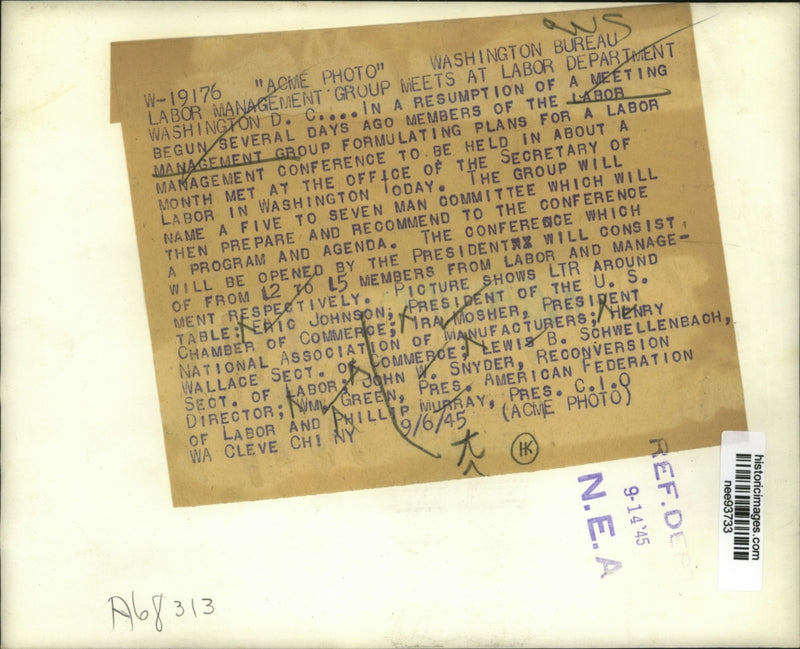 WS
W-19176 "ACME PHOTO" WASHINGTON BUREAU
LABOR MANAGEMENT GROUP MEETS AT LABOR DEPARTMENT
WASHINGTON D. C....IN A RESUMPTION OF A MEETING
BEGUN SEVERAL DAYS AGO MEMBERS OF THE LABOR
MANAGEMENT GROUP FORMULATING PLANS FOR A LABOR
MANAGEMENT CONFERENCE TO BE HELD IN ABOUT A
MONTH MET AT THE OFFICE OF THE SECRETARY OF
LABOR IN WASHINGTON TODAY. THE GROUP WILL
NAME A FIVE TO SEVEN MAN COMMITTEE WHICH WILL
THEN PREPARE AND RECOMMEND TO THE CONFERENCE
A PROGRAM AND AGENDA. THE CONFERENCE WHICH
WILL BE OPENED BY THE PRESIDENT WILL CONSIST
OF FROM 12 TO 15 MEMBERS FROM LABOR AND MANAGE-
MENT RESPECTIVELY. PICTURE SHOWS LTR AROUND
TABLE: ERIC JOHNSON, PRESIDENT OF THE U. S.
CHAMBER OF COMMERCE; IRA MOSHER, PRESIDENT
NATIONAL ASSOCIATION OF MANUFACTURERS; HENRY
WALLACE SECT. OF COMMERCE; LEWIS B. SCHWELLENBACH,
SECT. OF LABOR; JOHN W. SNYDER, RECONVERSION
DIRECTOR; WM. GREEN, PRES. AMERICAN FEDERATION
OF LABOR AND PHILLIP MURRAY, PRES. C.I.O
WA CLEVE CHI NY 9/6/45 (ACME PHOTO)
HK
REF. DE
9-14'45
N.E.A
historicimages.com
nee93733
A68313